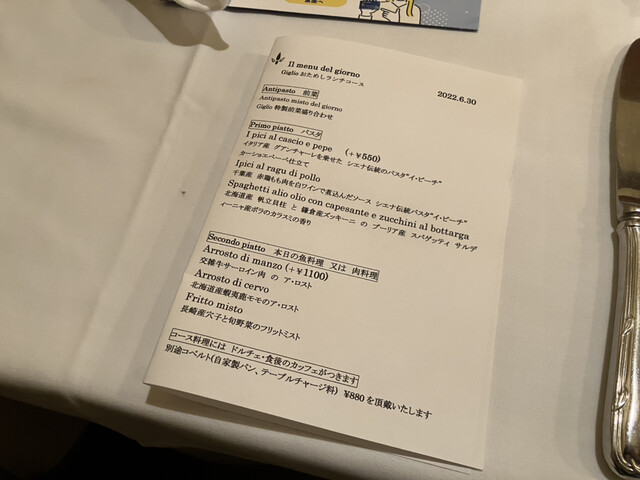 Il menu del giorno
Giglio おためしランチコース
2022.6.30
Antipasto 前菜
Antipasto misto del giorno
Giglio 特製前菜盛り合わせ
Primo piatto パスタ
I pici al cascio e pepe (+¥550)
イタリア産 グアンチャーレを乗せた シエナ伝統のパスタ"イ・ピーチ"
カーショエペーペ仕立て
Ipici al ragu di pollo
千葉産 赤鶏もも肉を白ワインで煮込んだソース シエナ伝統パスタ"イ・ピーチ"
Spaghetti alio olio con capesante e zucchini al bottarga
北海道産 帆立貝柱 と 鎌倉産ズッキーニ の プーリア産 スパゲッティ サルデ
ィーニャ産ボラのカラスミの香り
Secondo piatto 本日の魚料理 又は 肉料理
Arrosto di manzo (+¥1100)
交雑牛サーロイン肉 の ア・ロスト
Arrosto di cervo
北海道産蝦夷鹿モモのア・ロスト
Fritto misto
長崎産穴子と旬野菜のフリットミスト
コース料理には ドルチェ・食後のカッフェがつきます
別途コペルト(自家製パン、テーブルチャージ料) ¥880 を頂戴いたします